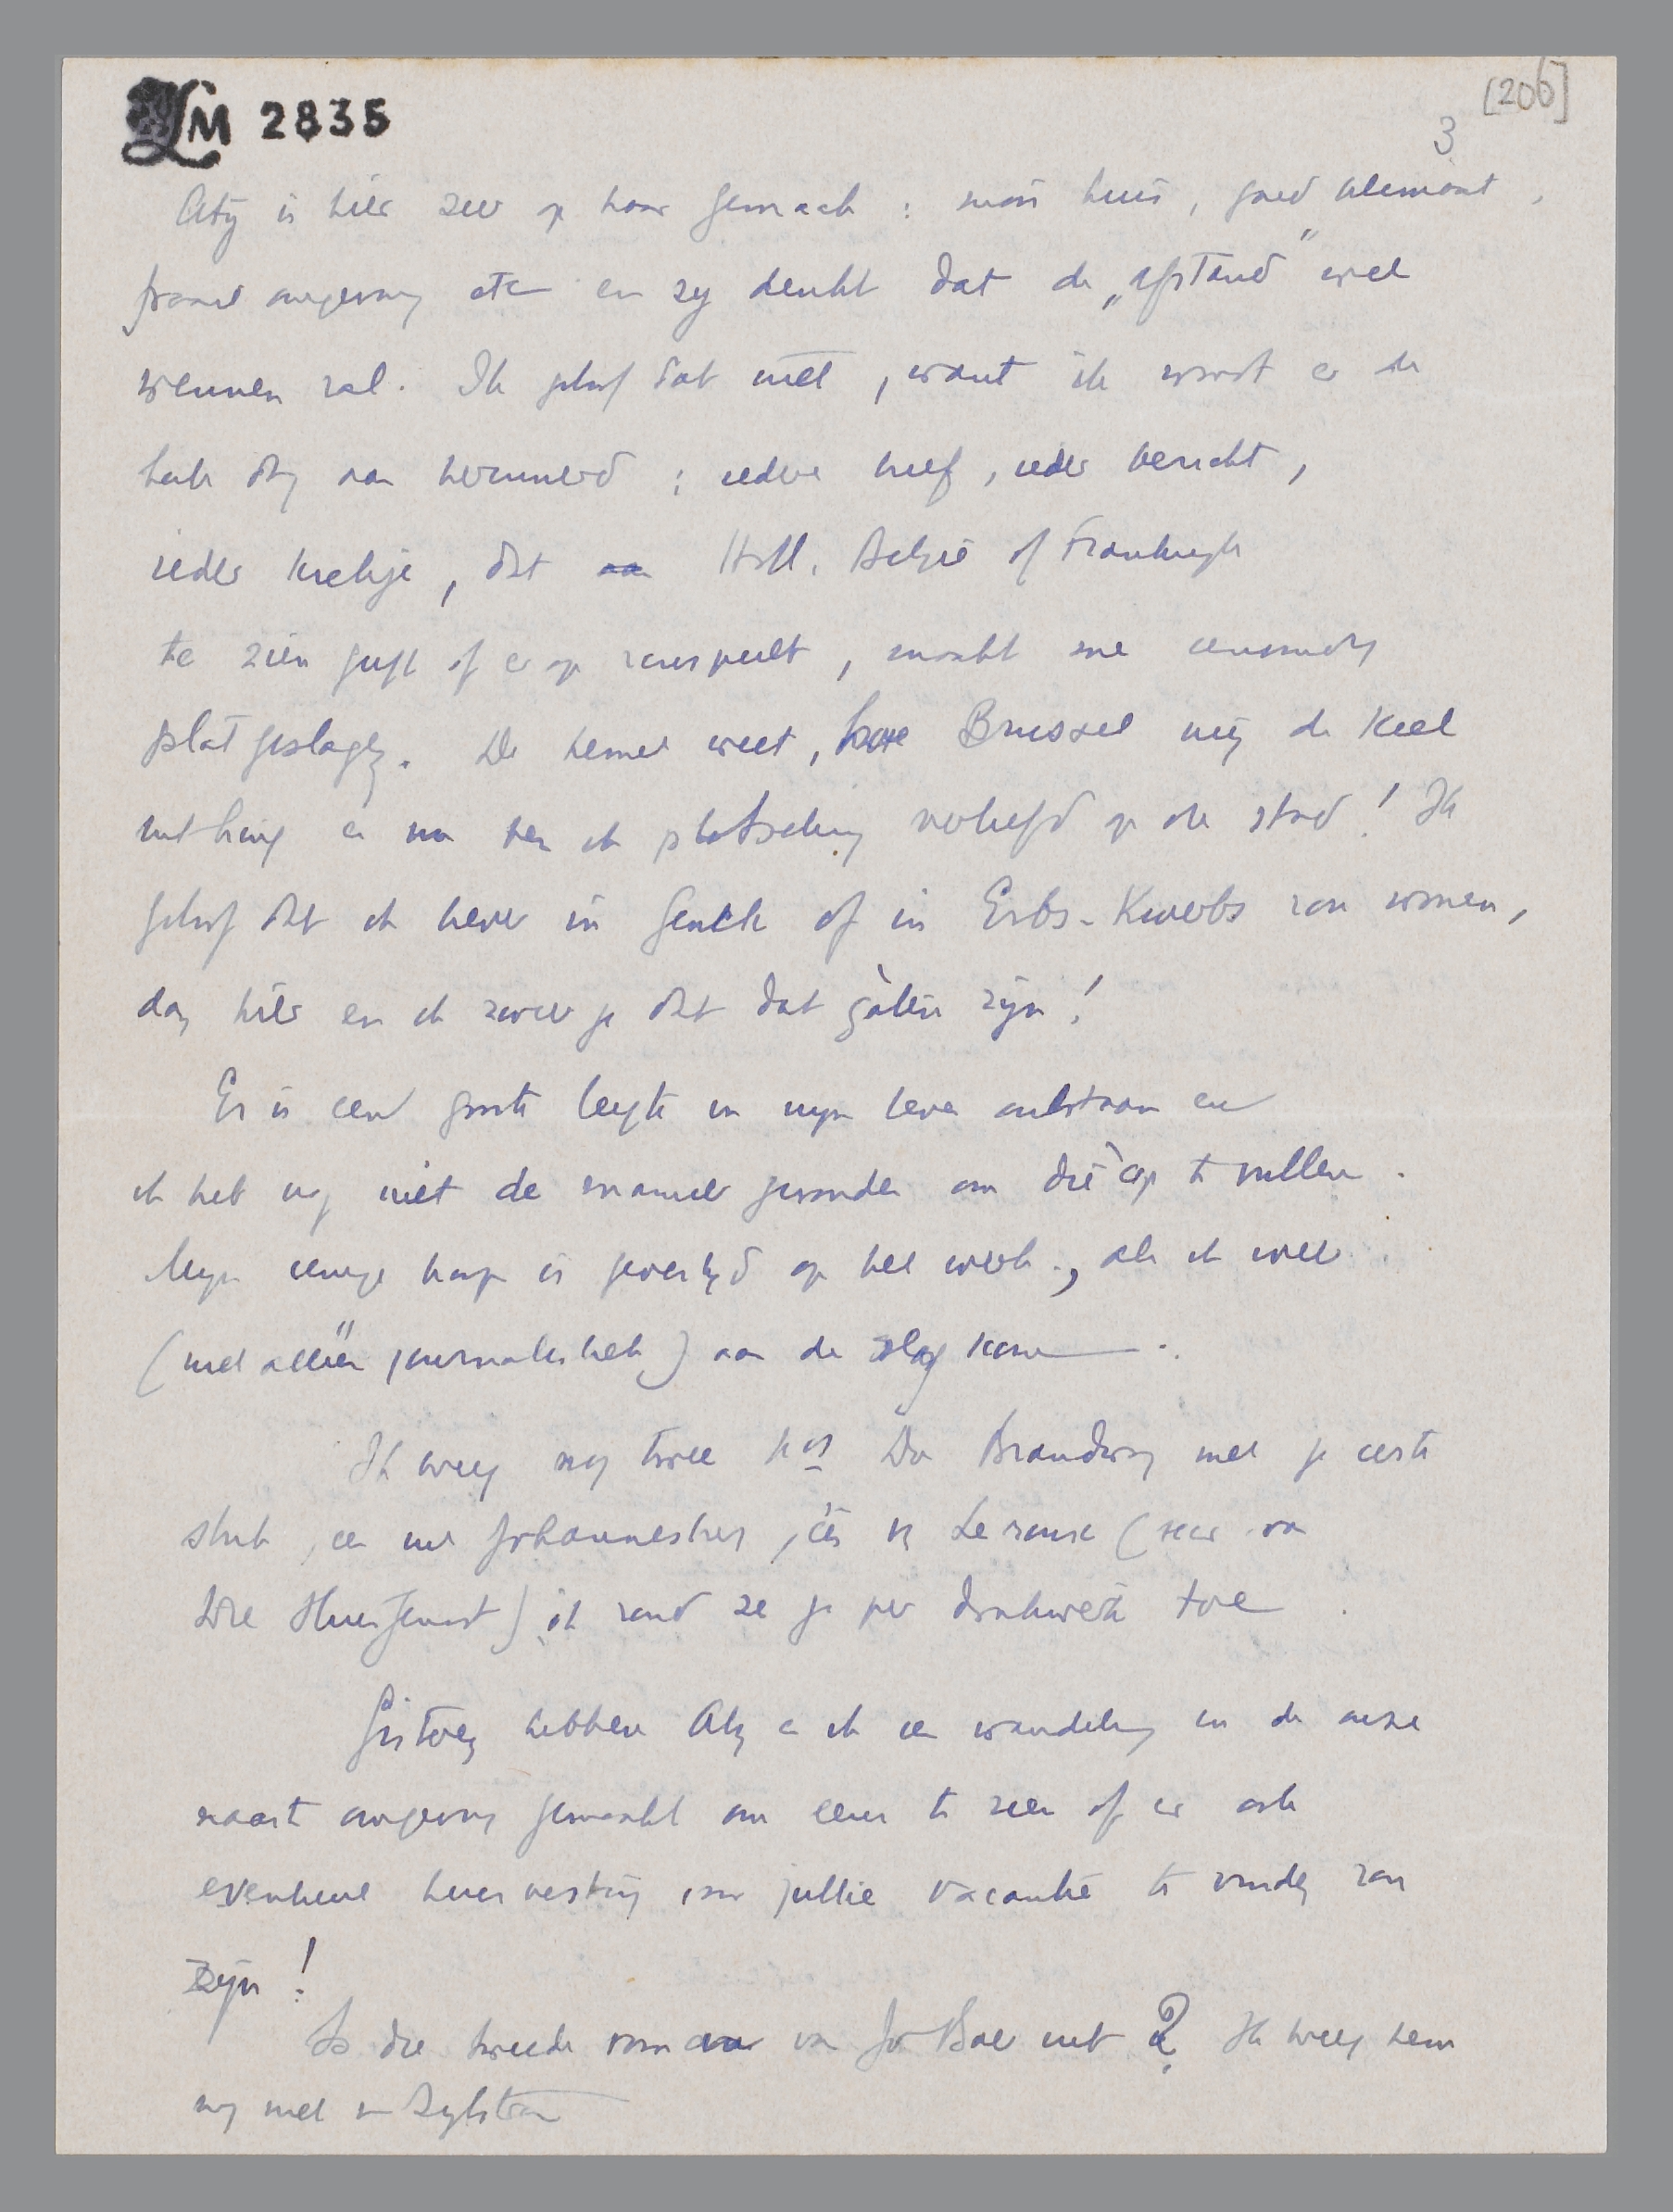 LM 2835
[206]
3
Aty is hier zeer op haar gemach : mooi huis, goed klimaat,
fraaie omgeving etc en zij denkt dat de „afstand" wel
wennen zal. Ik geloof dat niet, want ik word er de
heele dag aan herinnerd : iedere brief, ieder bericht,
ieder kiekje, dat Holl, België of Frankrijk
te zien geeft of er op zinspeelt, maakt me eenvoudig
plat geslagen. De hemel weet, hoe Brussel mij de keel
uithing en nu ben ik plotseling verliefd op die stad! Ik
geloof dat ik liever in Genck of in Erbs-Kwerbs zou wonen,
dan hier en ik zweer je dat dat gàten zijn!
Er is een groote leegte in mijn leven ontstaan en
ik heb nog niet de manier gevonden om die op te vullen.
Mijn eenige hoop is gevestigd op het werk, als ik weer
(niet alleen journalistiek) aan de slag kom.
Ik kreeg nog twee nos De Brandwag met je eerste
stuk, en uit Johannesburg, ik zend ze je per drukwerk toe.
Gisteren hebben Aty en ik een wandeling in de onze
naaste omgeving gemaakt om eens te zien of er ook
eventueel huisvesting voor jullie vacantie te vinden zou
zijn!
Is die tweede roman van Jo Boer uit? Ik kreeg hem
nog niet van Zijlstra